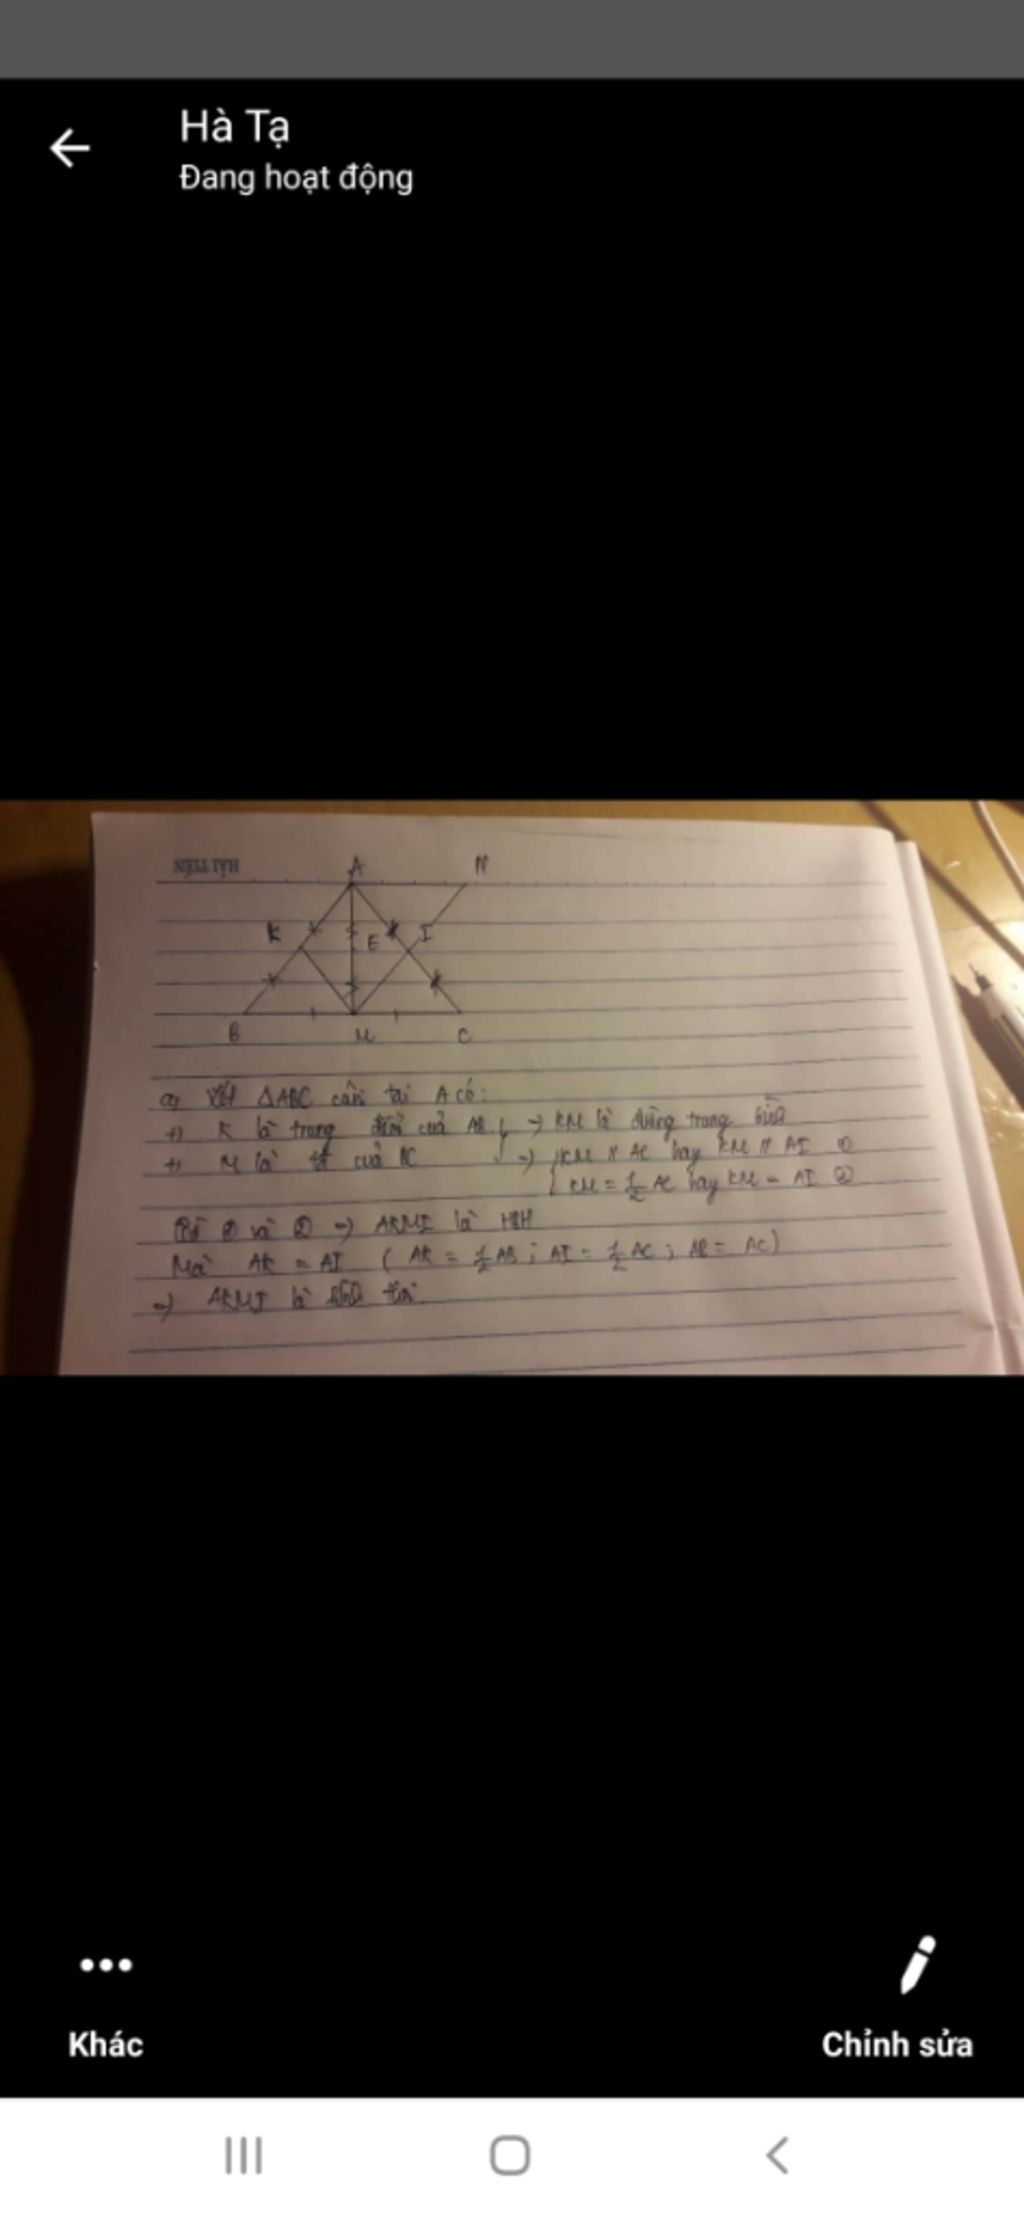 Hà Tạ
Đang hoạt động
HẢI TIẾN
A N
K E I
B M C
a) Xét ΔABC cân tại A có:
+) K là trung điểm của AB } => KM là đường trung bình
+) M là tđ của BC => { KM // AC hay KM // AI ①
KM = 1/2 AC hay KM = AI ②
Từ ① và ② => AKMI là HBH
Mà AK = AI ( AK = 1/2 AB ; AI = 1/2 AC ; AB = AC)
=> AKMI là hình thoi
Khác
Chỉnh sửa